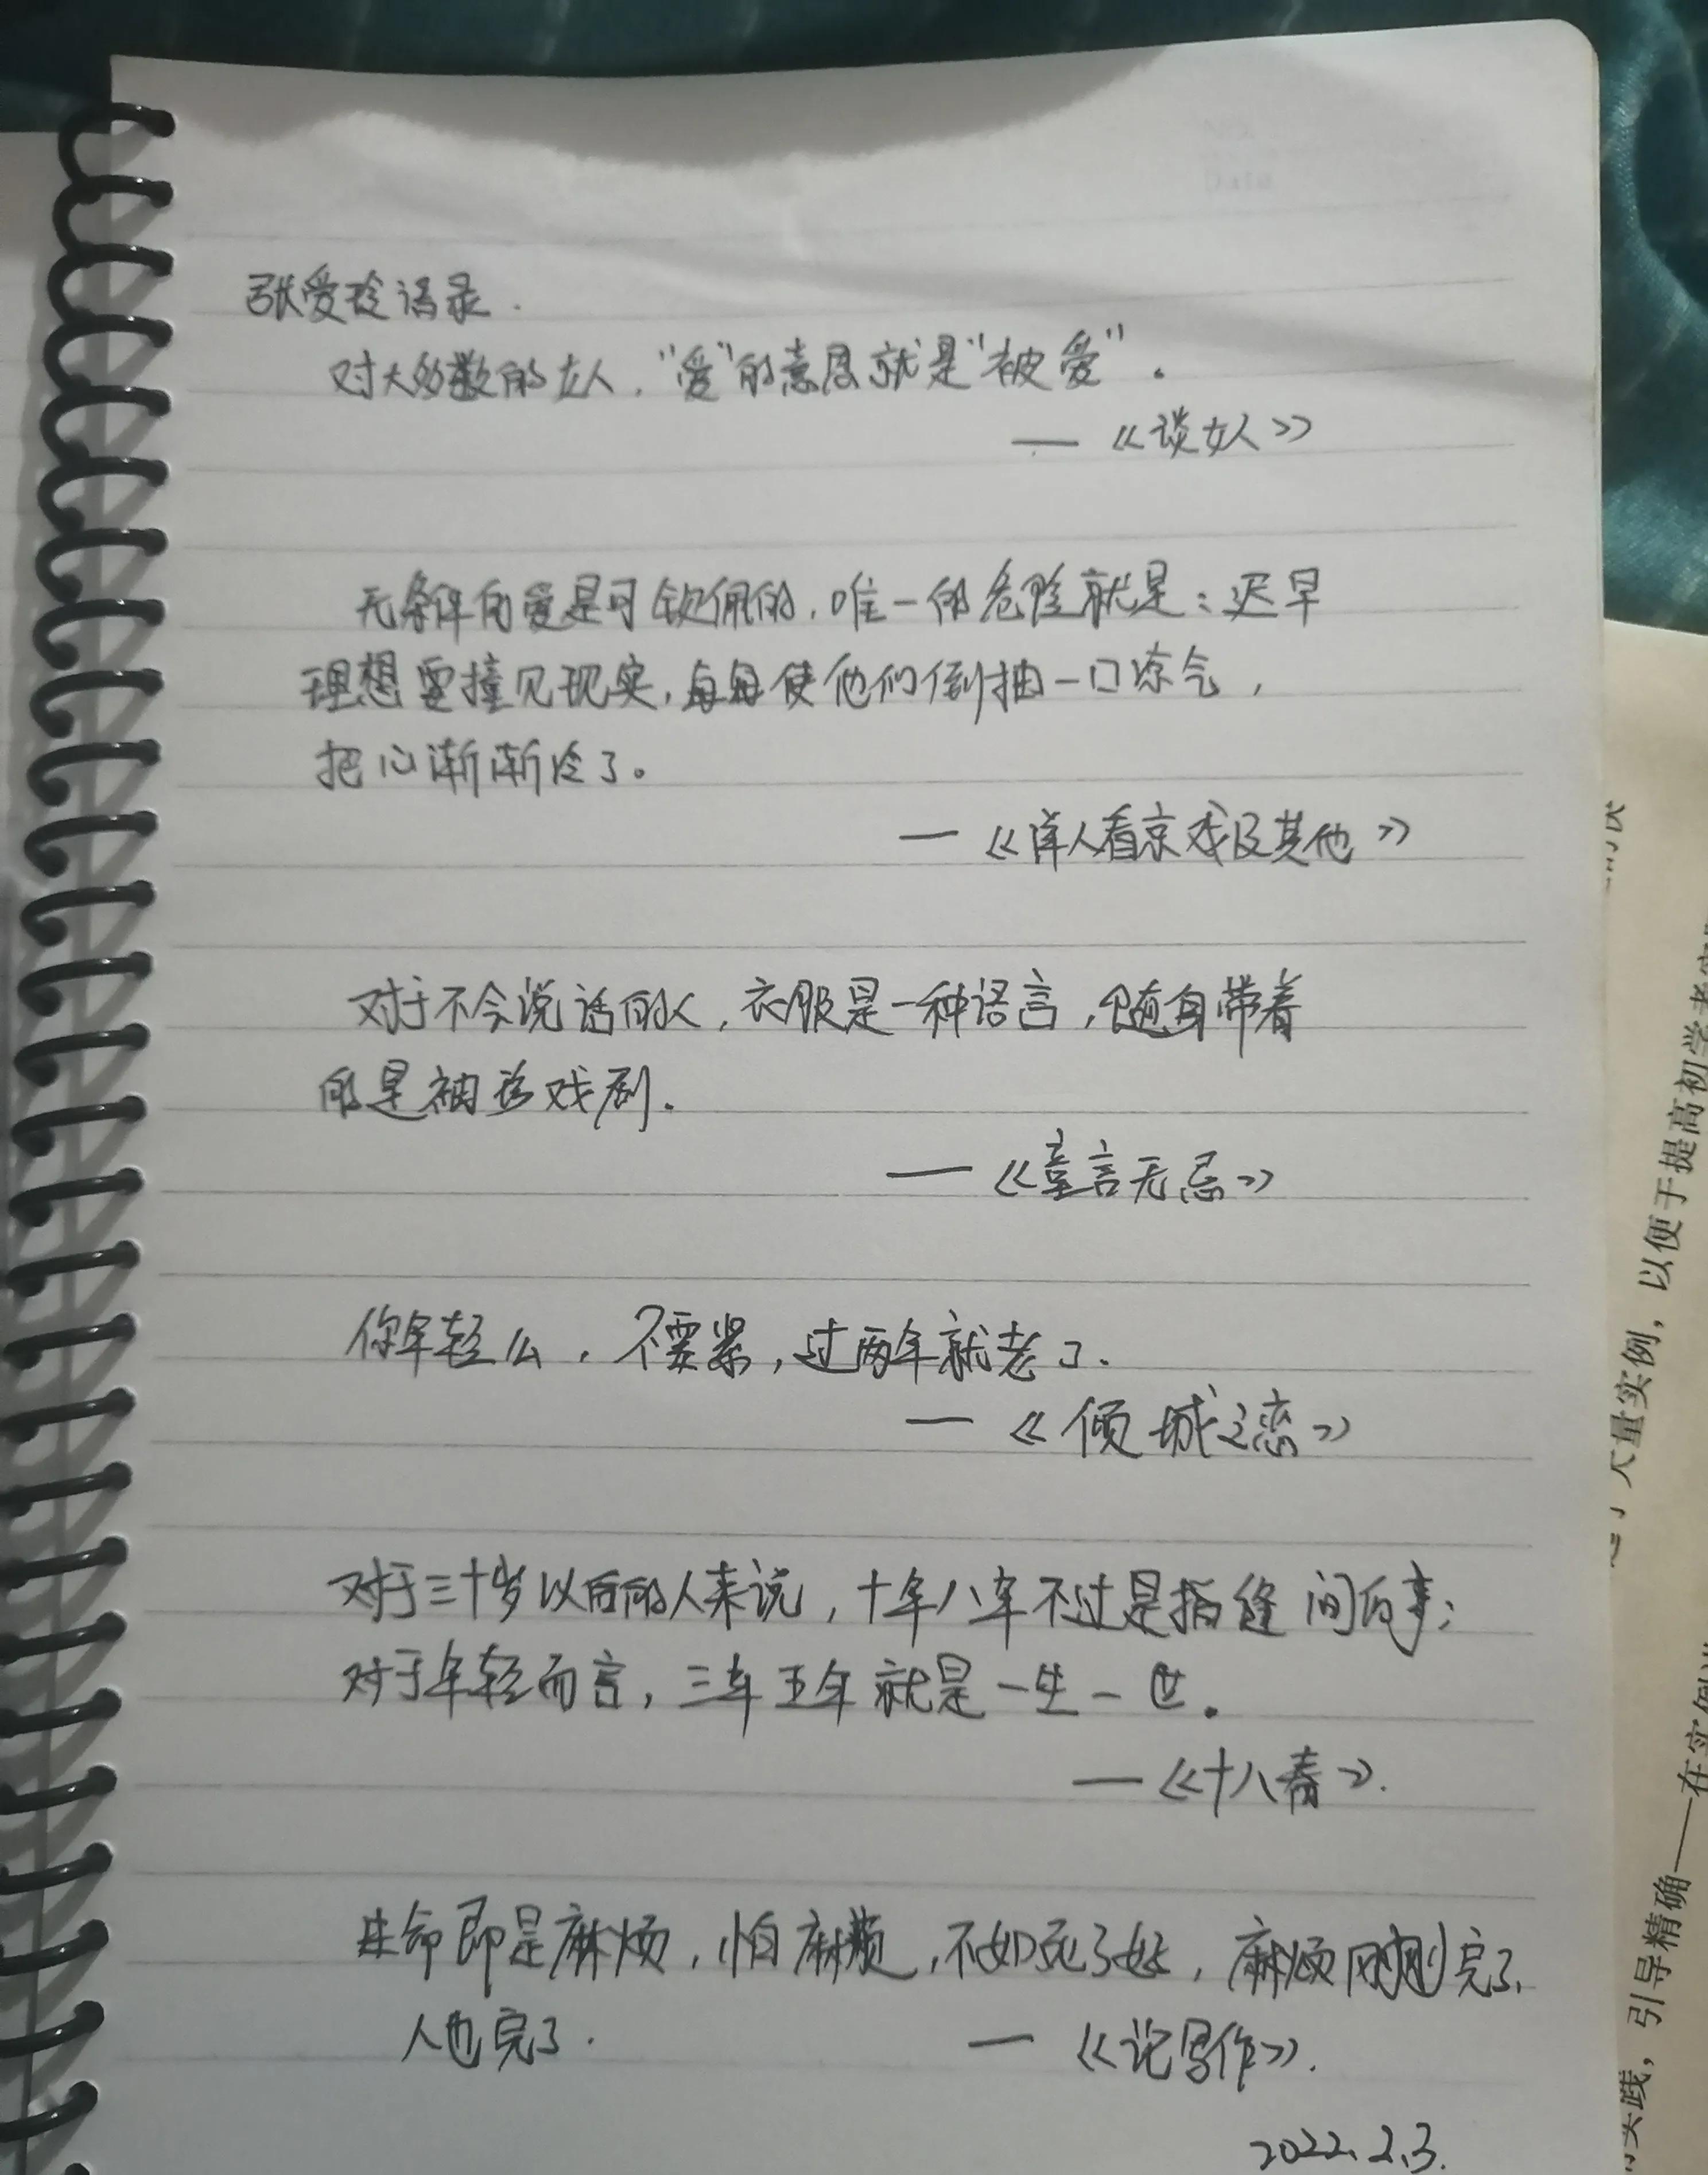 张爱玲语录.
对大多数的女人，"爱"的意思就是"被爱"。
—《谈女人》
无条件的爱是可钦佩的，唯一的危险就是：迟早
理想要撞见现实，每每使他们倒抽一口凉气，
把心渐渐冷了。
—《洋人看京戏及其他》
对于不会说话的人，衣服是一种语言，随身带着
的是袖珍戏剧.
—《童言无忌》
你年轻么，不要紧，过两年就老了.
—《倾城之恋》
对于三十岁以后的人来说，十年八年不过是指缝间的事；
对于年轻而言，三年五年就是一生一世。
—《十八春》.
生命即是麻烦，怕麻烦，不如死了好，麻烦刚刚完了、
人也完了.
—《论写作》.
2022.2.3.
大量实例，以便于提高初学者
引导精确——在实例
实践，